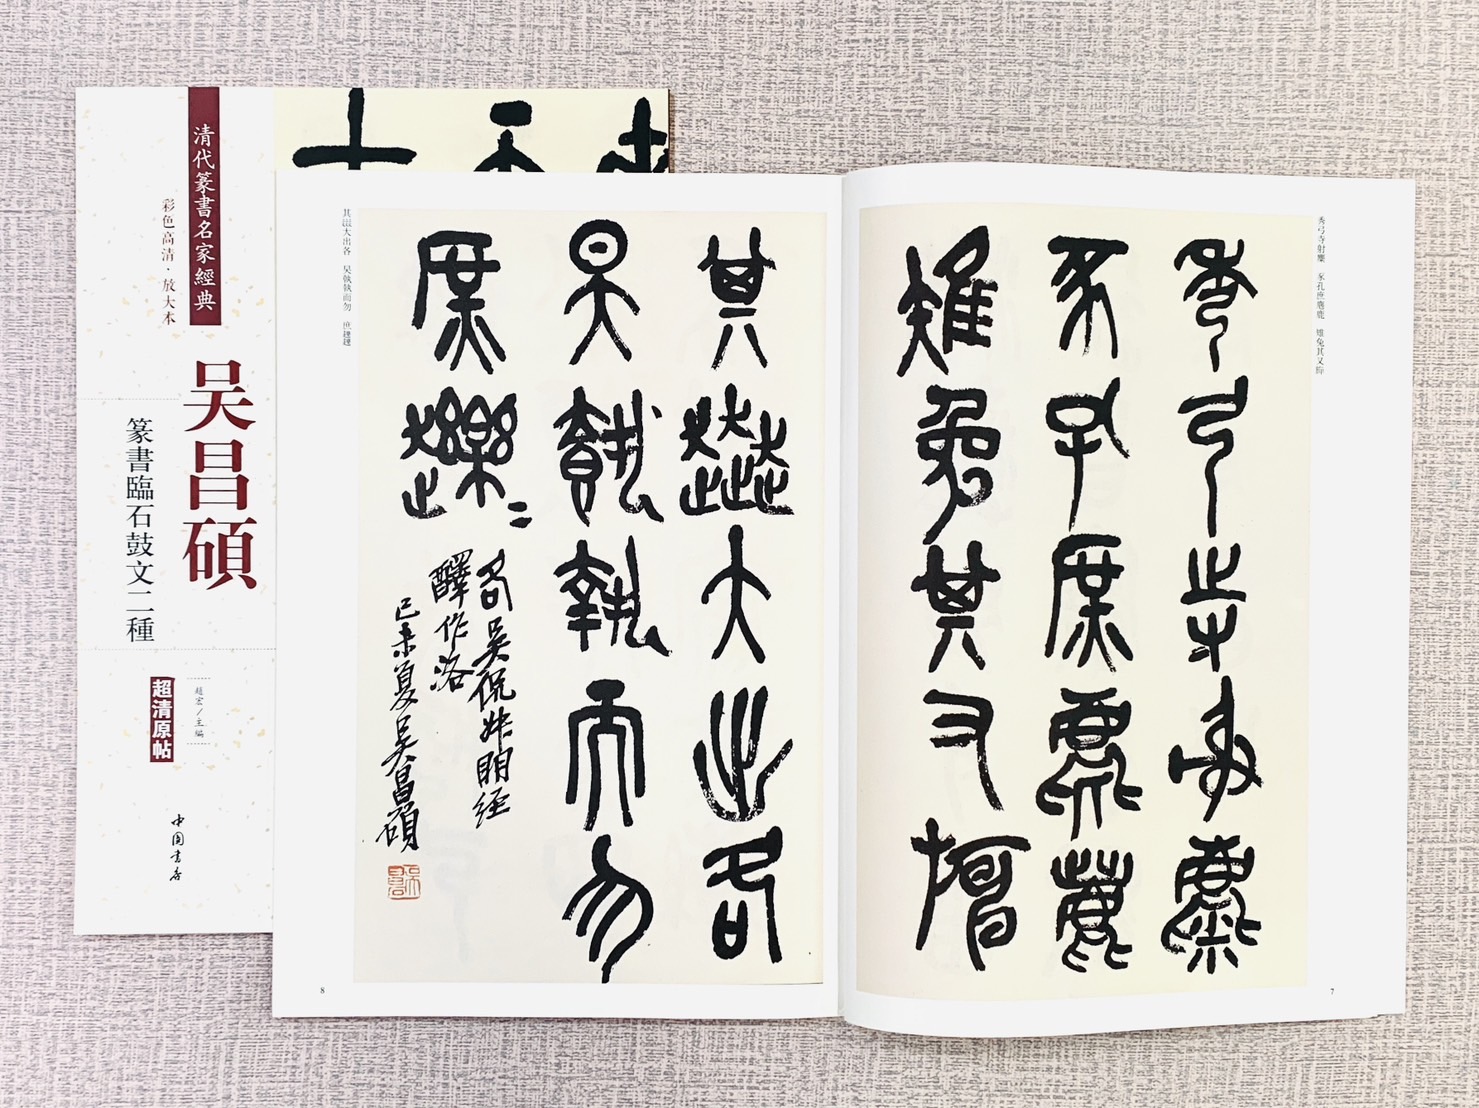 清代篆書名家經典
彩色高清·放大本
吴昌碩
篆書臨石鼓文二種
趙宏/主編
超清原帖
中国书店
秀弓寺射麋 豕孔庶麀鹿 雉兔其又
秀弓寺射麋
豕孔庶麀鹿
雉兔其又
7
其大出各 吴執執而勿 庶趯趯
其大出各
執而勿
庶趯=
各吴侃叔明經
釋作洛
己未夏吴昌碩
8